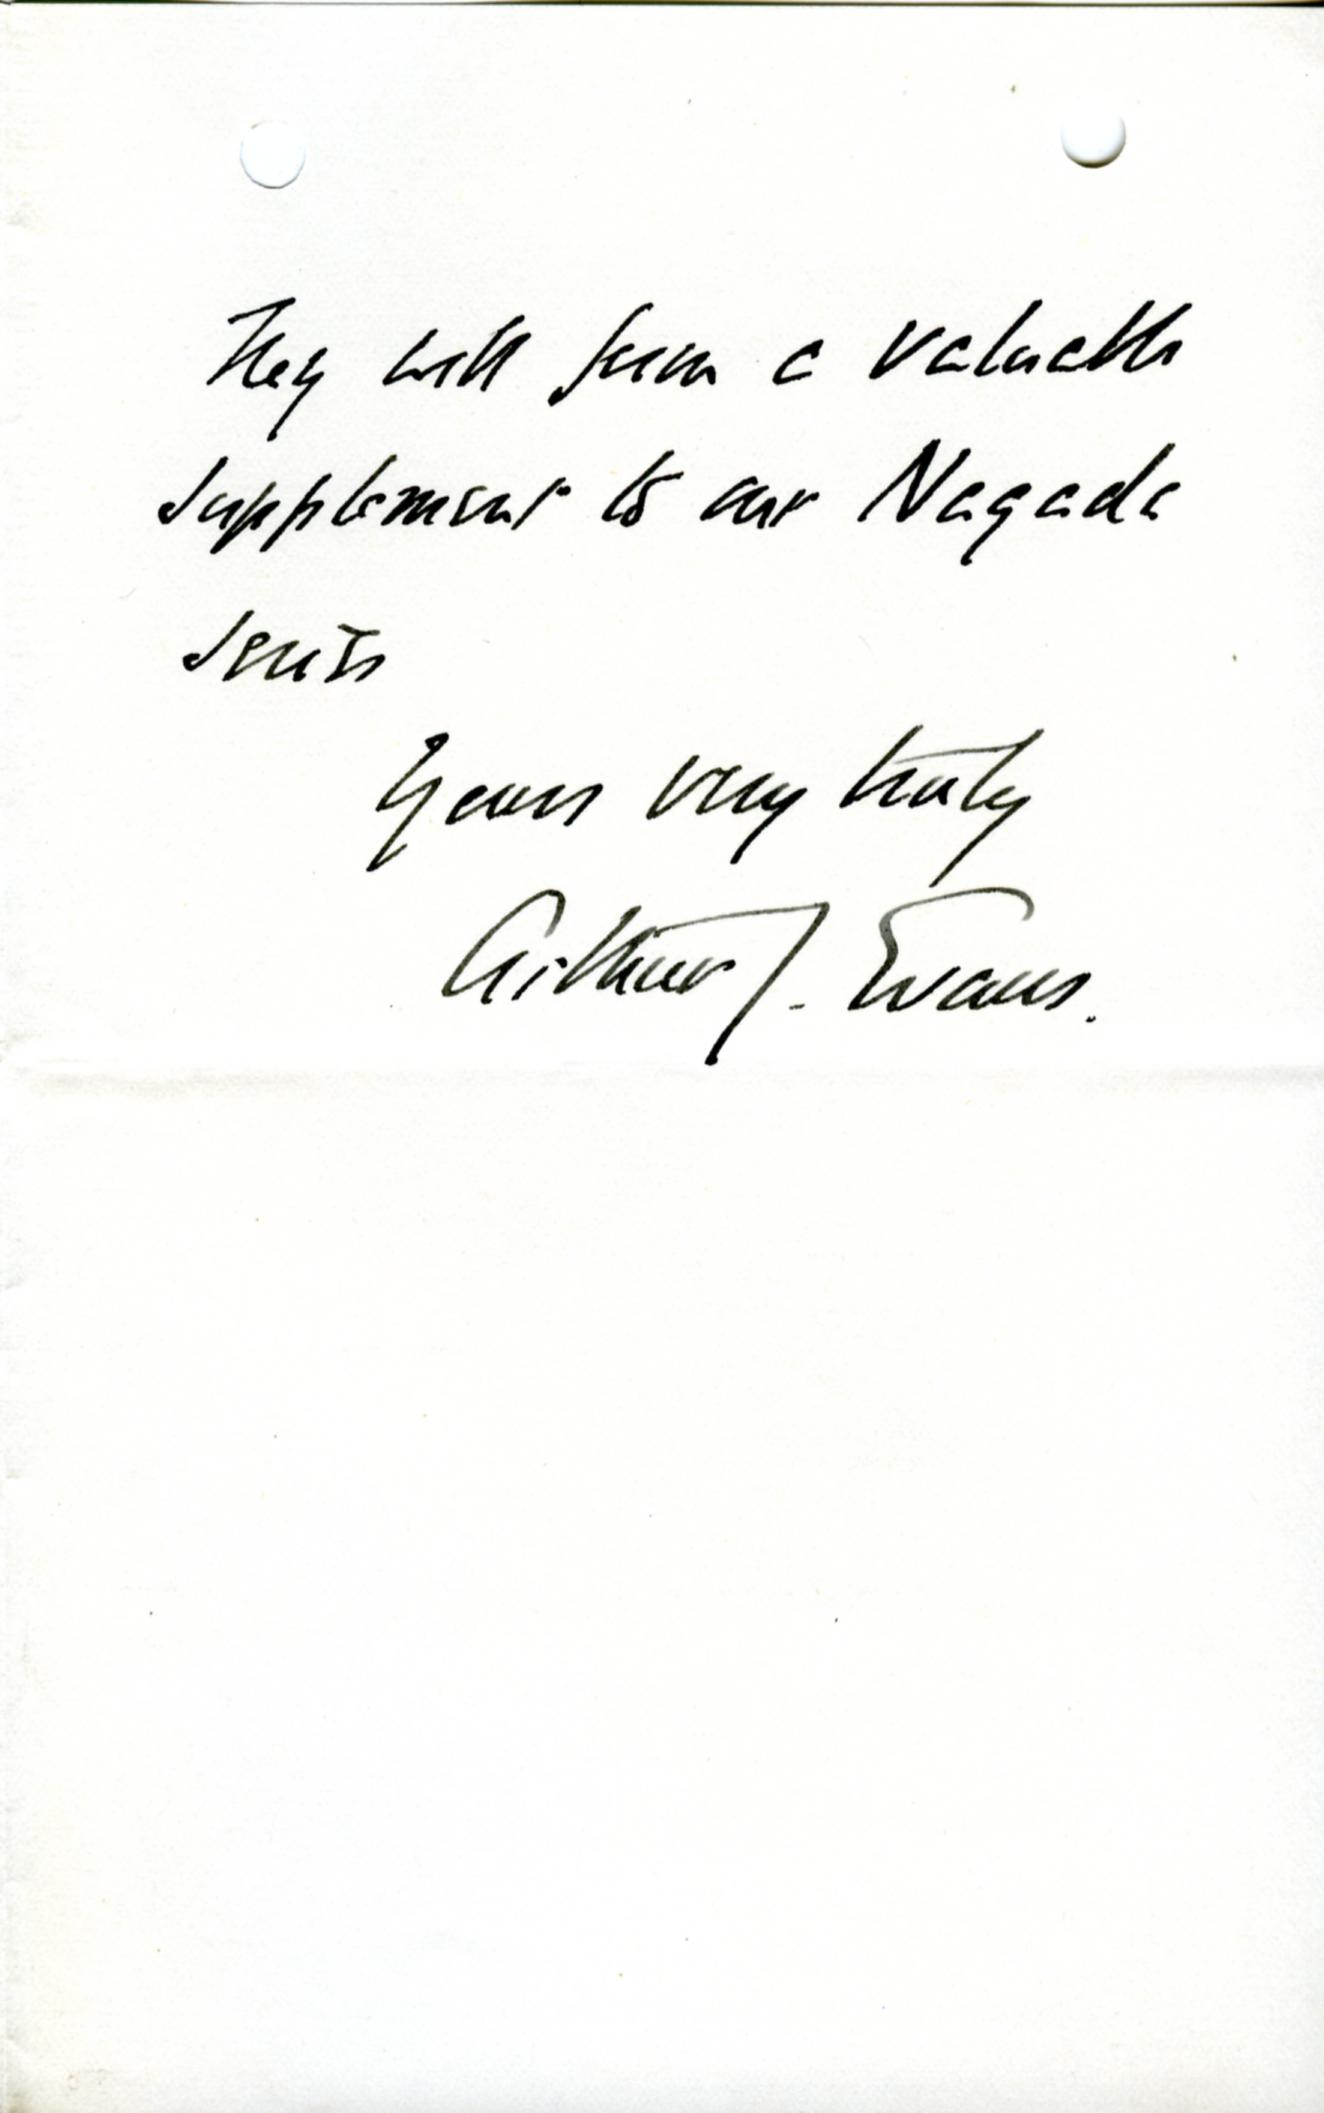 They will form a valuable
supplement to our Naqada
series
Yours very truly
Arthur J. Evans.